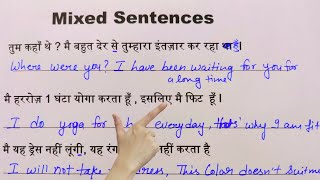 Mixed Sentences
तुम कहाँ थे ? मै बहुत देर से तुम्हारा इंतज़ार कर रहा हूँ।
Where were you? I have been waiting for you for
a long time.
मै हररोज़ 1 घंटा योगा करता हूँ , इसलिए मै फिट हूँ ।
I do yoga for everyday, that's why I am fit
मै यह ड्रेस नहीं लूंगी, यह रंग नहीं करता है
I will not take dress, This Color doesn't suit me